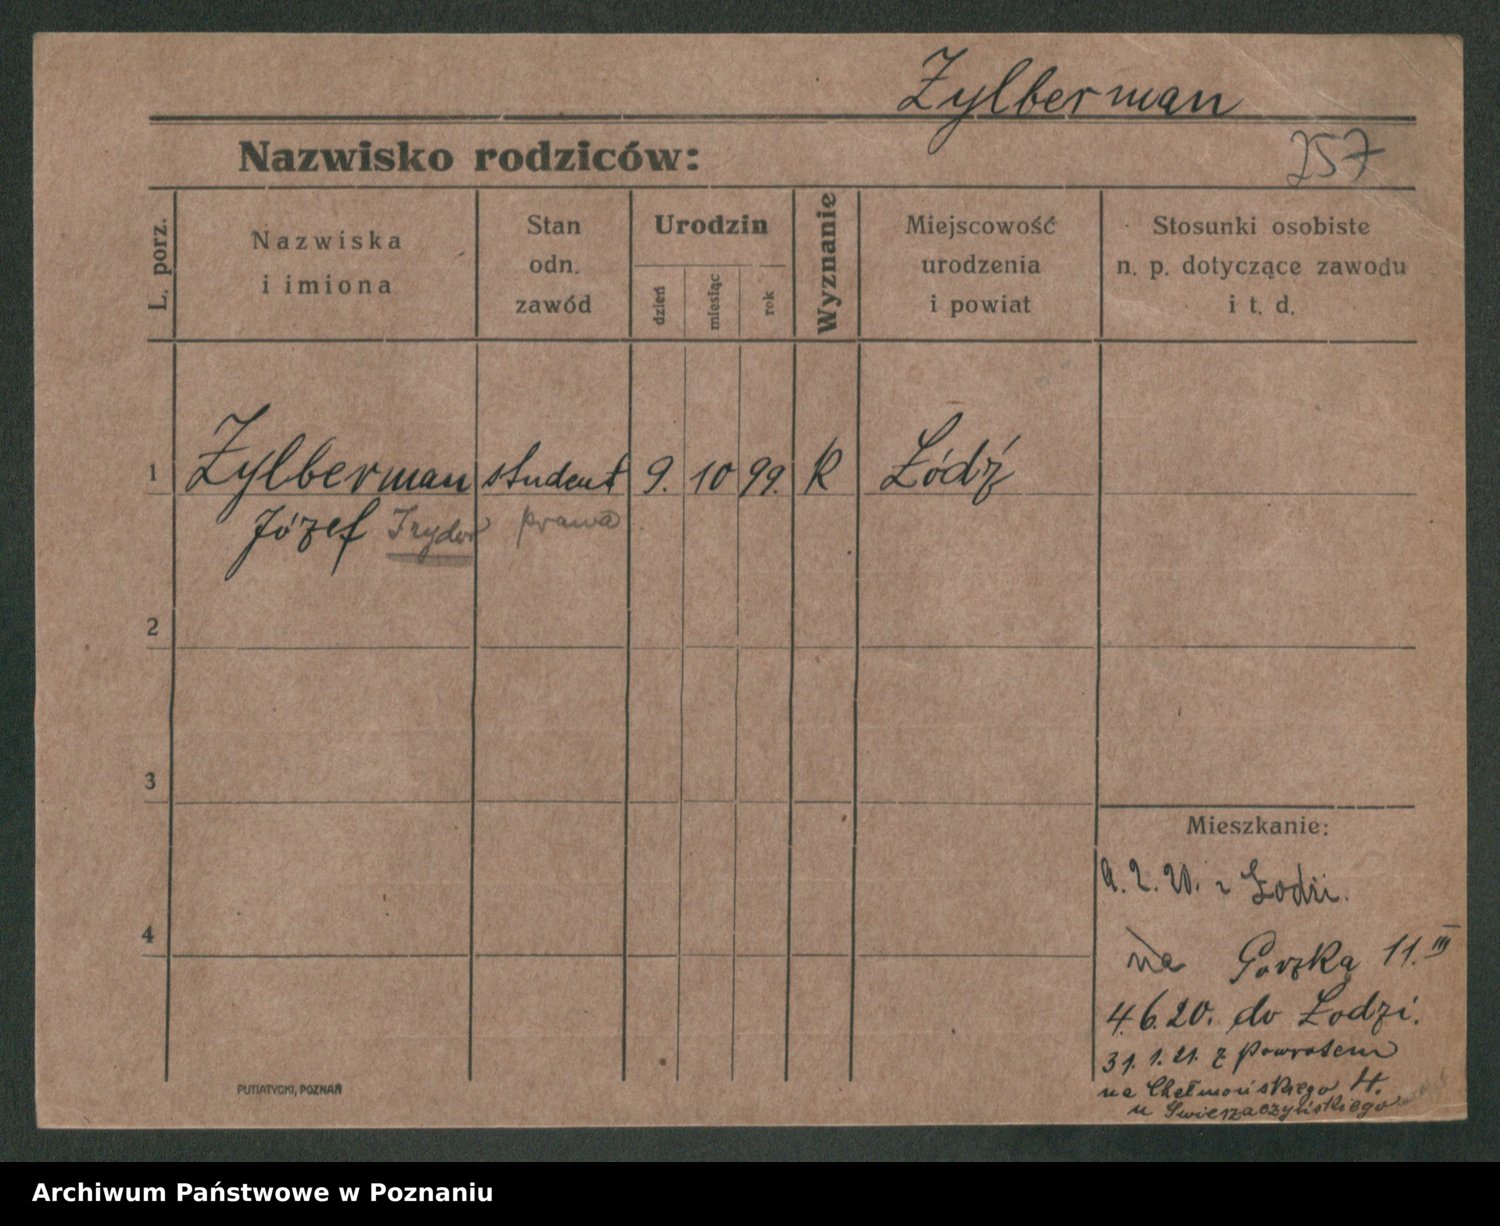 Zylberman
Nazwisko rodziców:
257
L. porz.
Nazwiska
i imiona
Stan
odn.
zawód
Urodzin
dzień
miesiąc
rok
Wyznanie
Miejscowość
urodzenia
i powiat
Stosunki osobiste
n. p. dotyczące zawodu
i t. d.
1 Zylberman student 9. 10 99. R Łódź
Józef Izydor prawa
2
3
Mieszkanie:
9. 2. 20. z Łodzi.
4
na Gorzka 11. III
4.6.20. do Łodzi.
31. 1. 21. z powrotem
na Chełmońskiego 4.
u
PUTIATYCKI, POZNAŃ
Archiwum Państwowe w Poznaniu